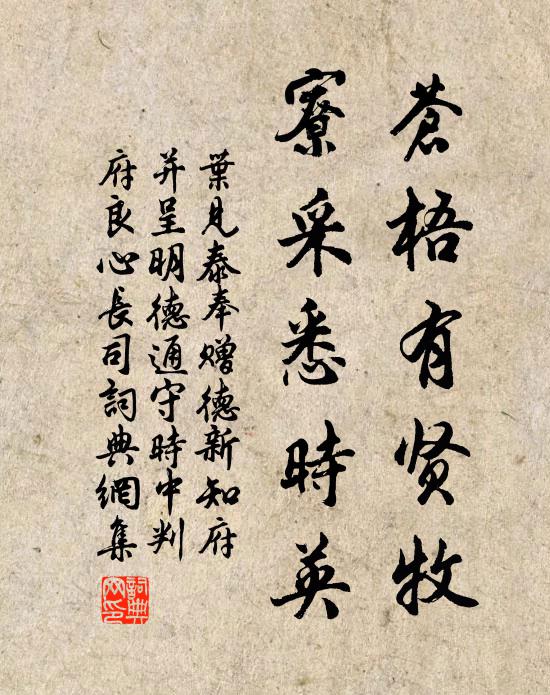 蒼梧有贤牧
寮采悉時英
葉見泰奉贈德新知府
并呈明德通守時中判
府良心長司詞典網集
詞典网印